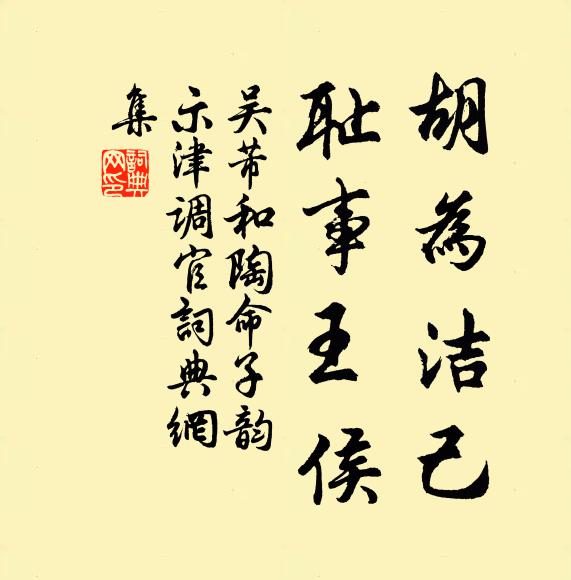 胡為洁己
耻事王侯
吴芾和陶命子韵
示津调官詞典網
集
詞典網印